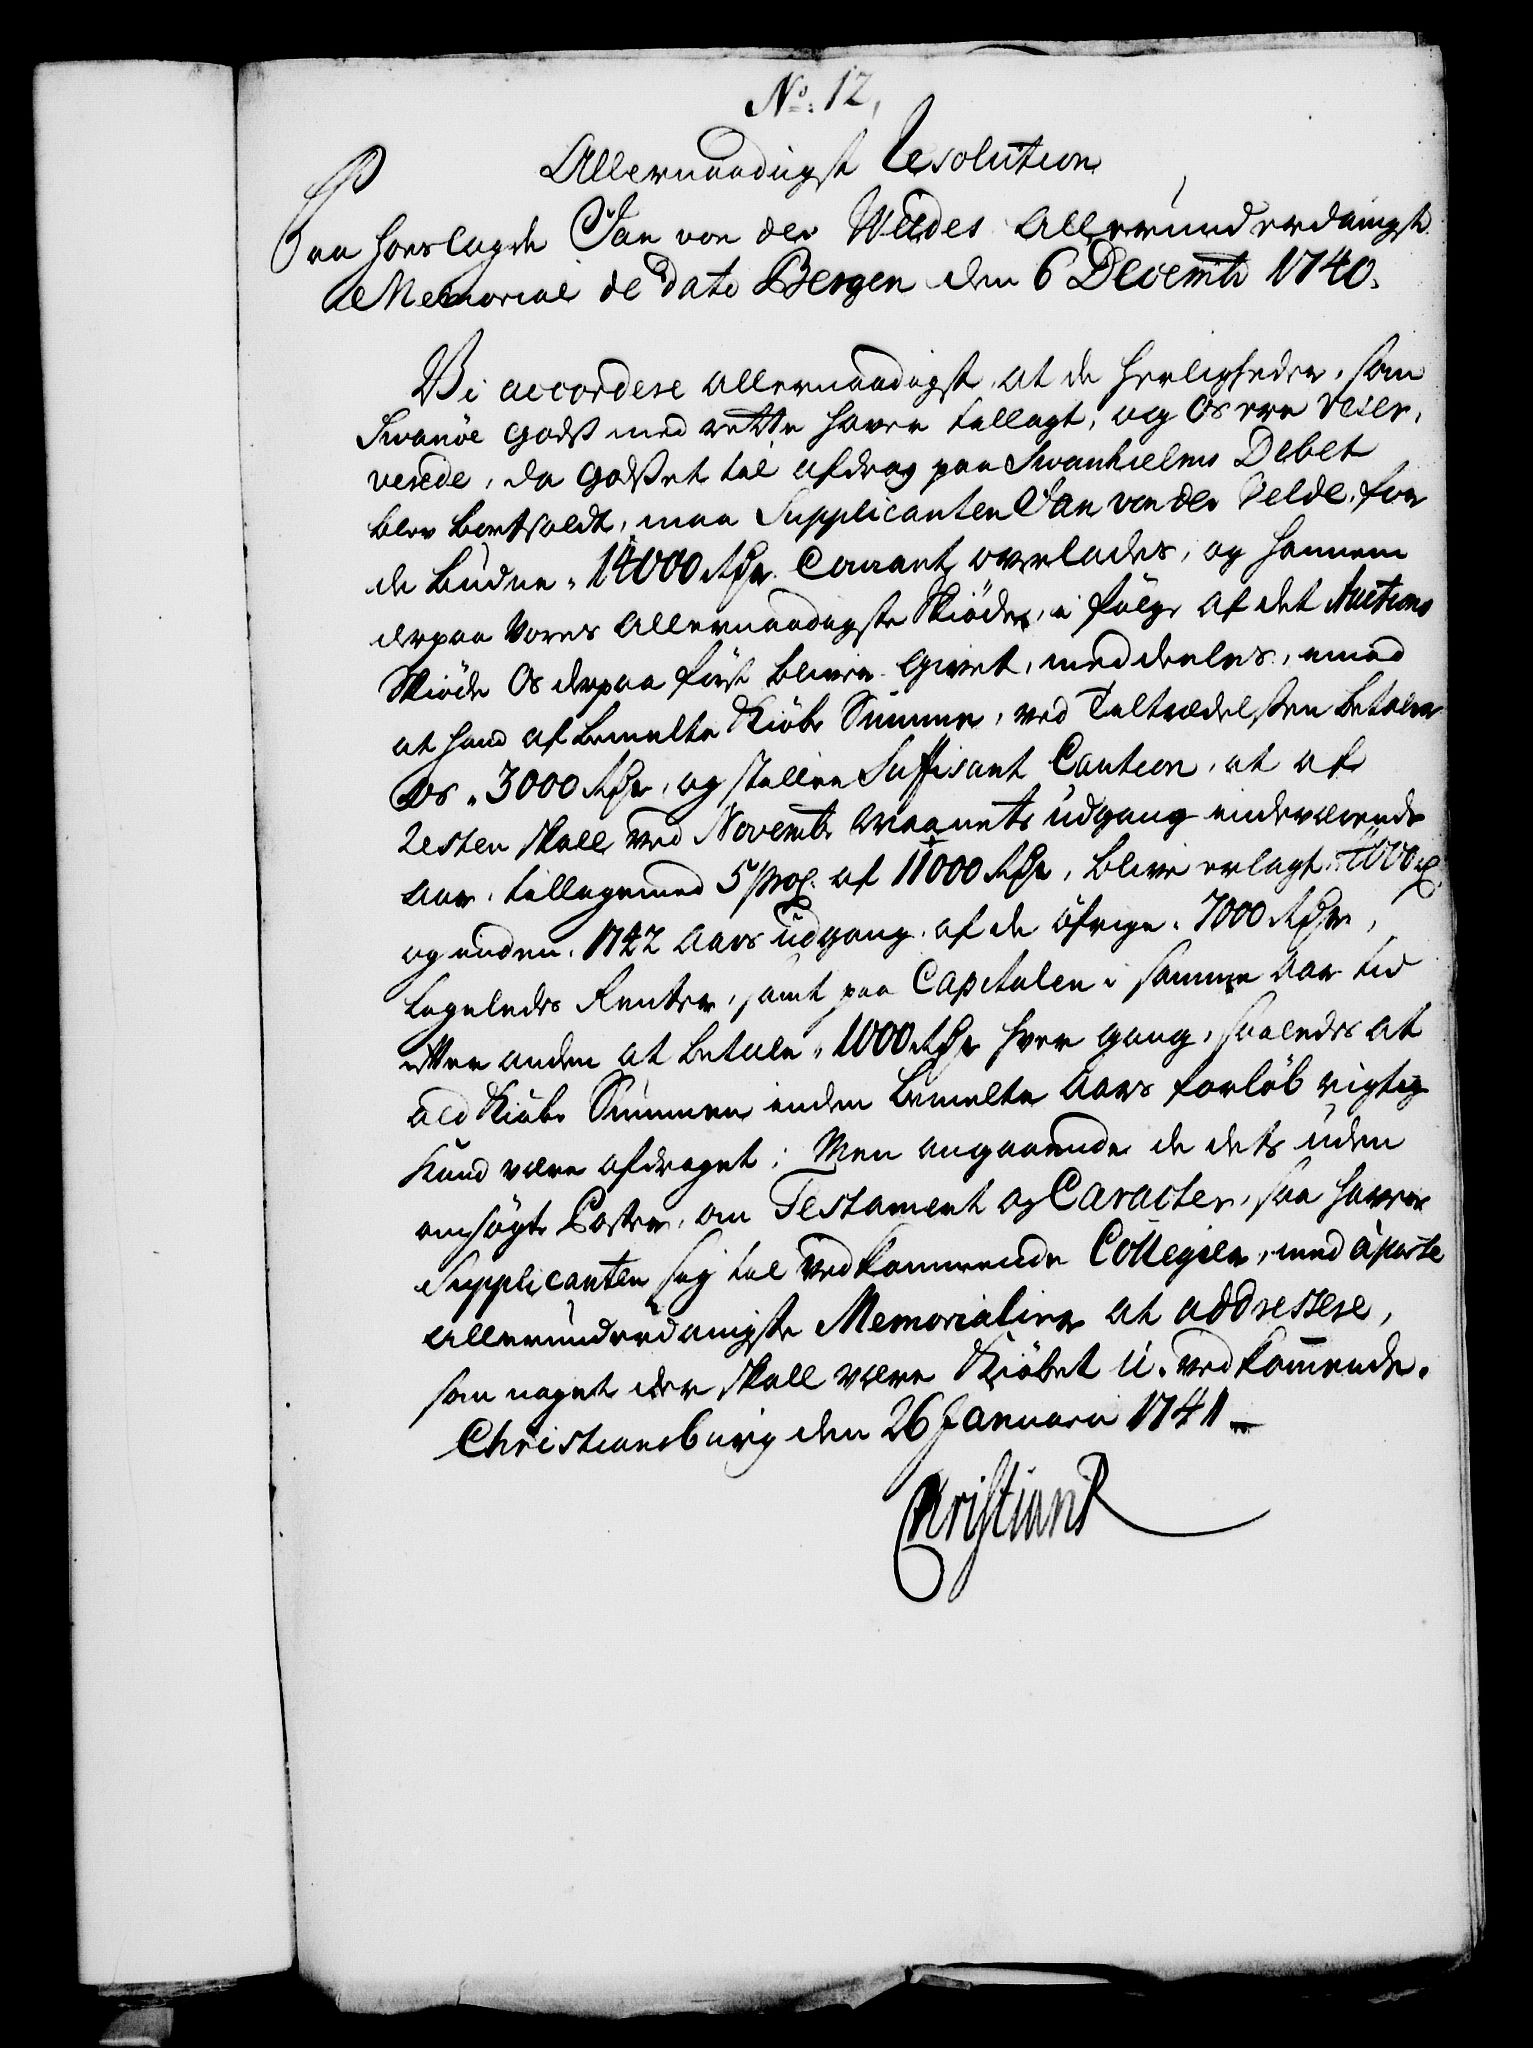 No: 12,
Allernaadigst Resolution
Paa foreslagde Jan von der Weldes Allerunderdanigst
Memorial de dato Bergen den 6 Decembr 1740.
Vi accordere allernaadigst, at de Herligheder, som
Svanøe Godß med rette haver tillagt, og Os ere reser-
verede, da Godßet til afdrag paa Svanhielms Debet
blev bortsoldt, maa Supplicanten Van von der Velde, for
de budne 14000 Rdr. Courant overlades, og hannem
derpaa Vores Allernaadigste Skiøde, i følge af det Auctions
Skiøde Os derpaa først bliver givet, meddeeles, imod
at hand af bemelte Kiøbe Summe, ved Tiltrædelsen betaler
Os 3000 Rdr, og stiller Suffisant Caution, at af
Resten skall ved Novembr Maanets udgang indeværende
Aar, tillige med 5 proC. af 11000 Rdr, blive erlagt 4000 Rd,
og inden 1742 Aars udgang af de øfrige 7000 Rdr,
ligeledes Renter, samt paa Capitalen i samme Aar tid
efter anden at betale 1000 Rdr hver gang, saaledes at
ald Kiøbe Summen inden bemelte Aars forløb rigtig
kand være afdraget; Men angaaende de dets uden
ansøgte Poster, om Testament og Caracter, saa haver
Supplicanten sig til vedkommende Collegier, med àparte
allerunderdanigste Memorialier at addressere,
som noget der skall være Kiøbet u-vedkommende.
Christiansburg den 26 Januarii 1741
Christian R